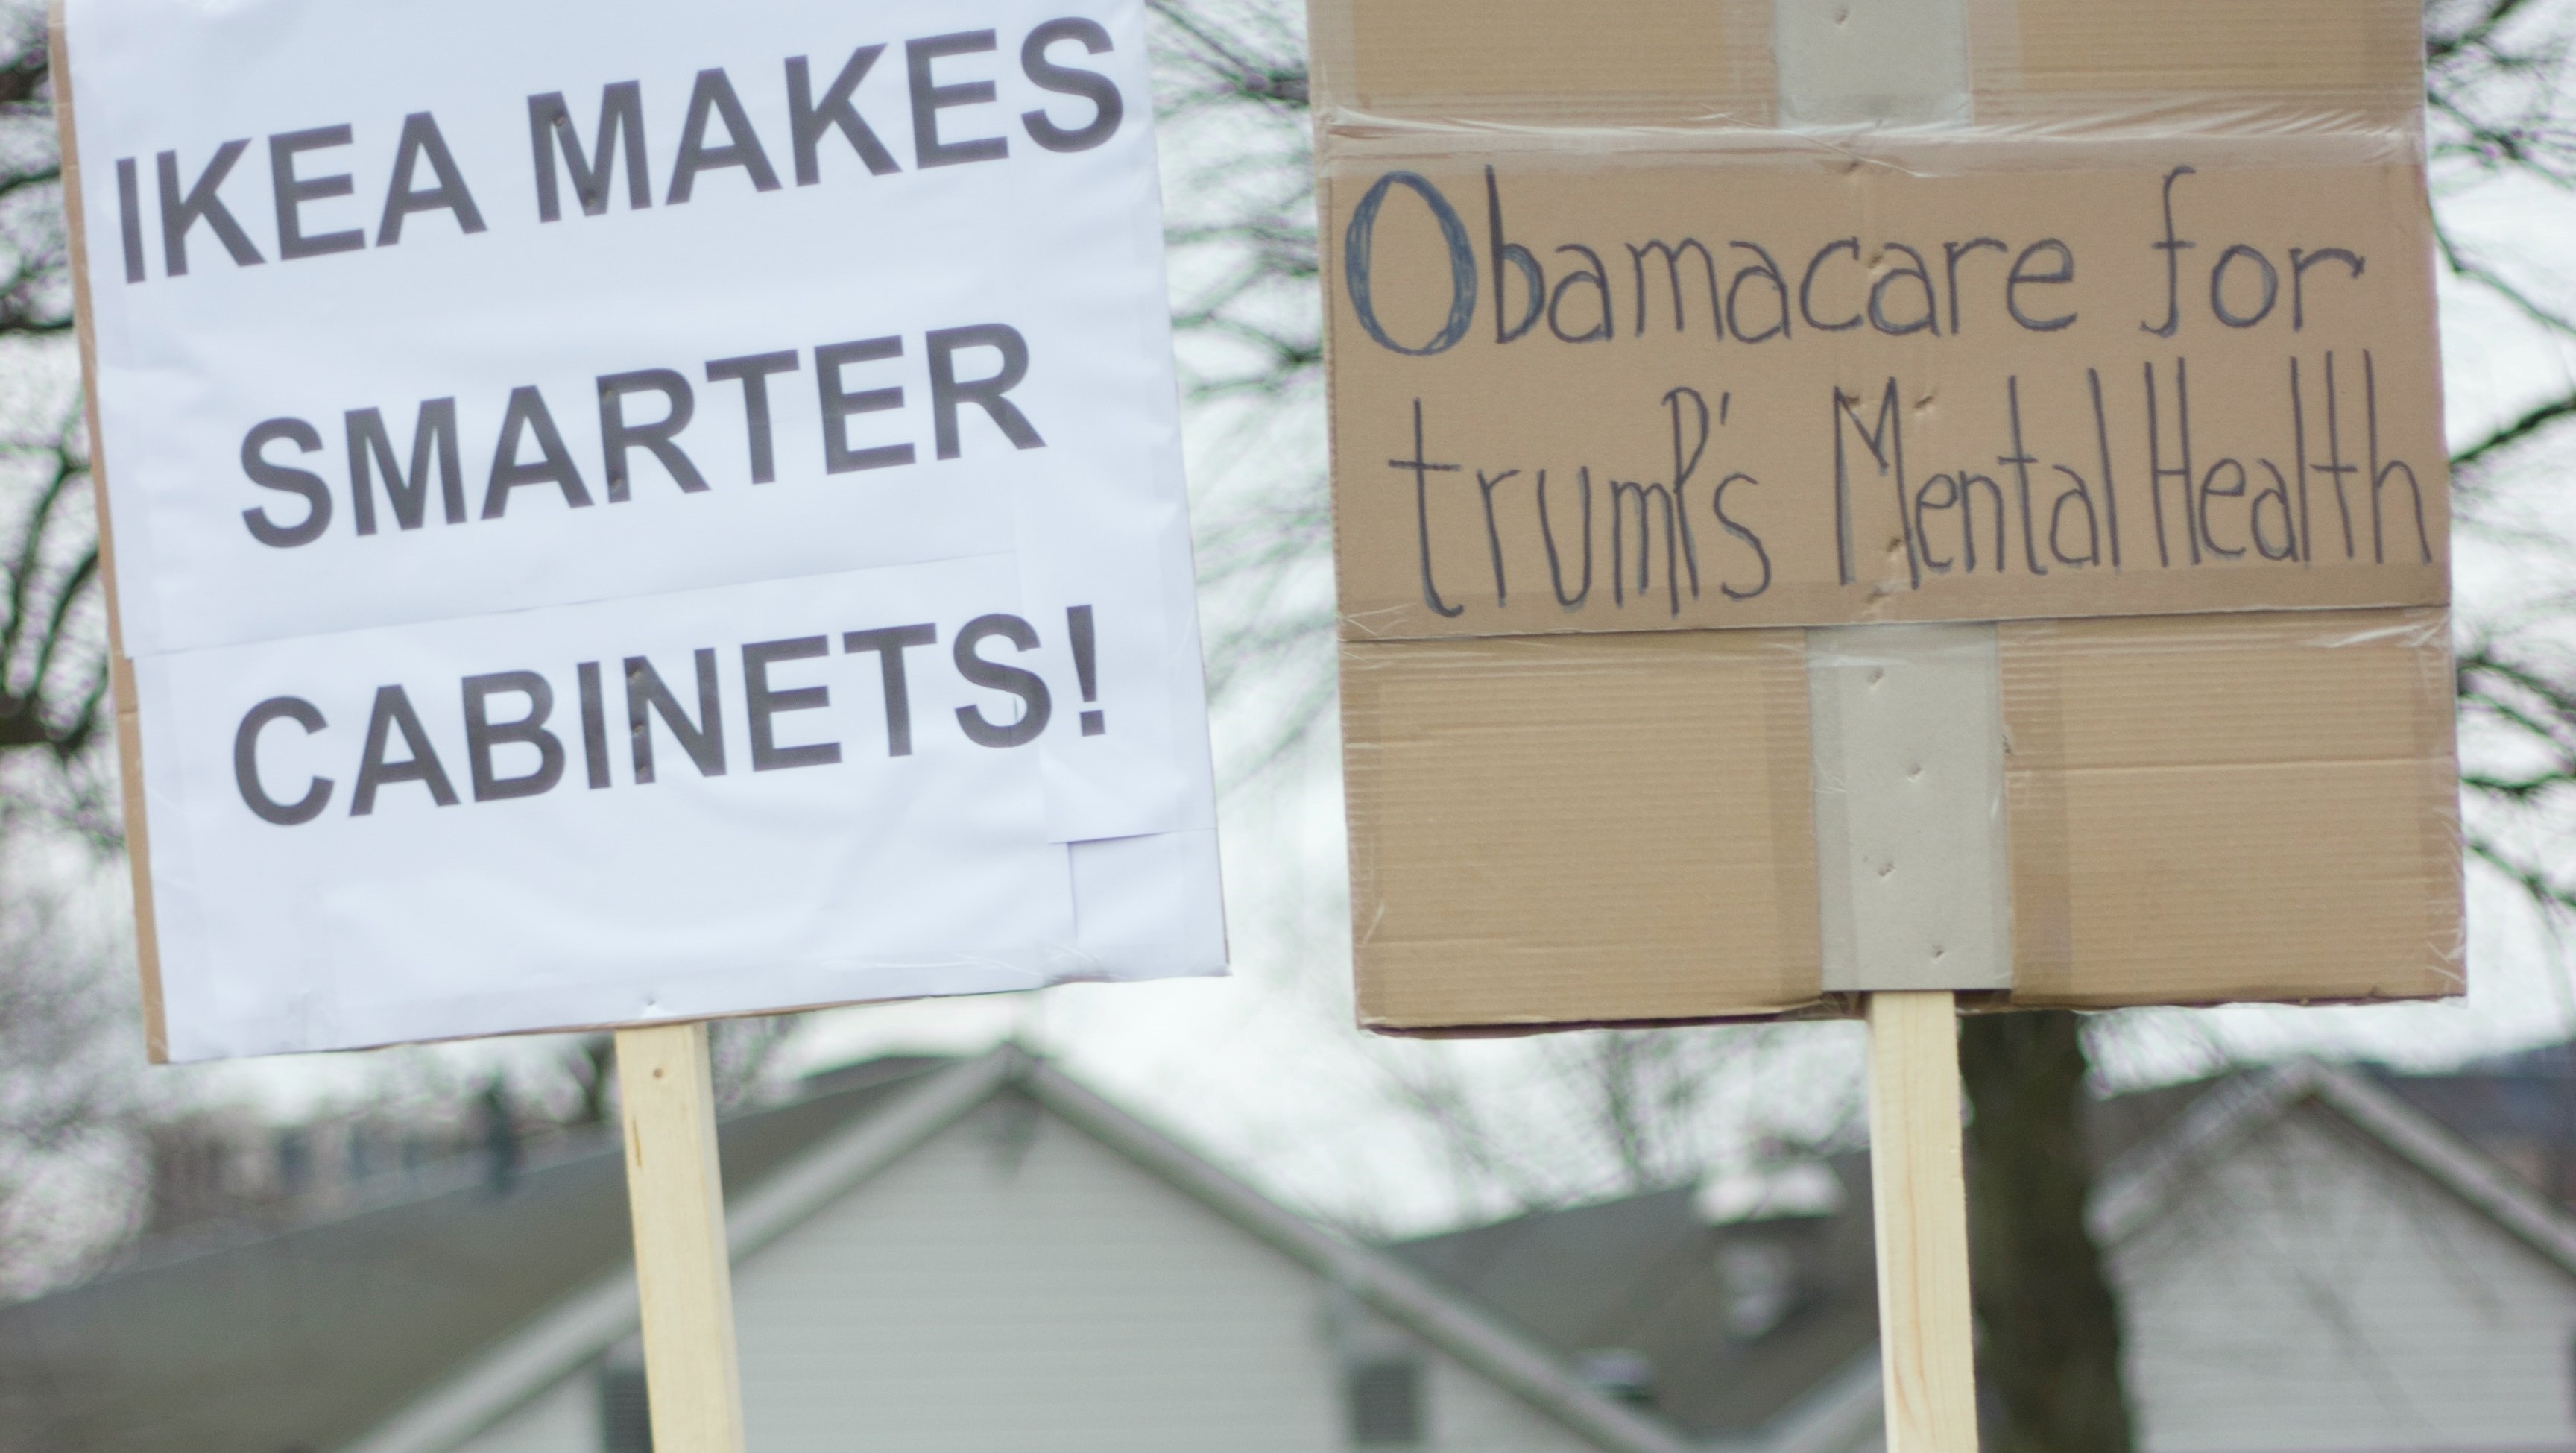 IKEA MAKES
SMARTER
CABINETS!
Obamacare for
trumP's Mental Health